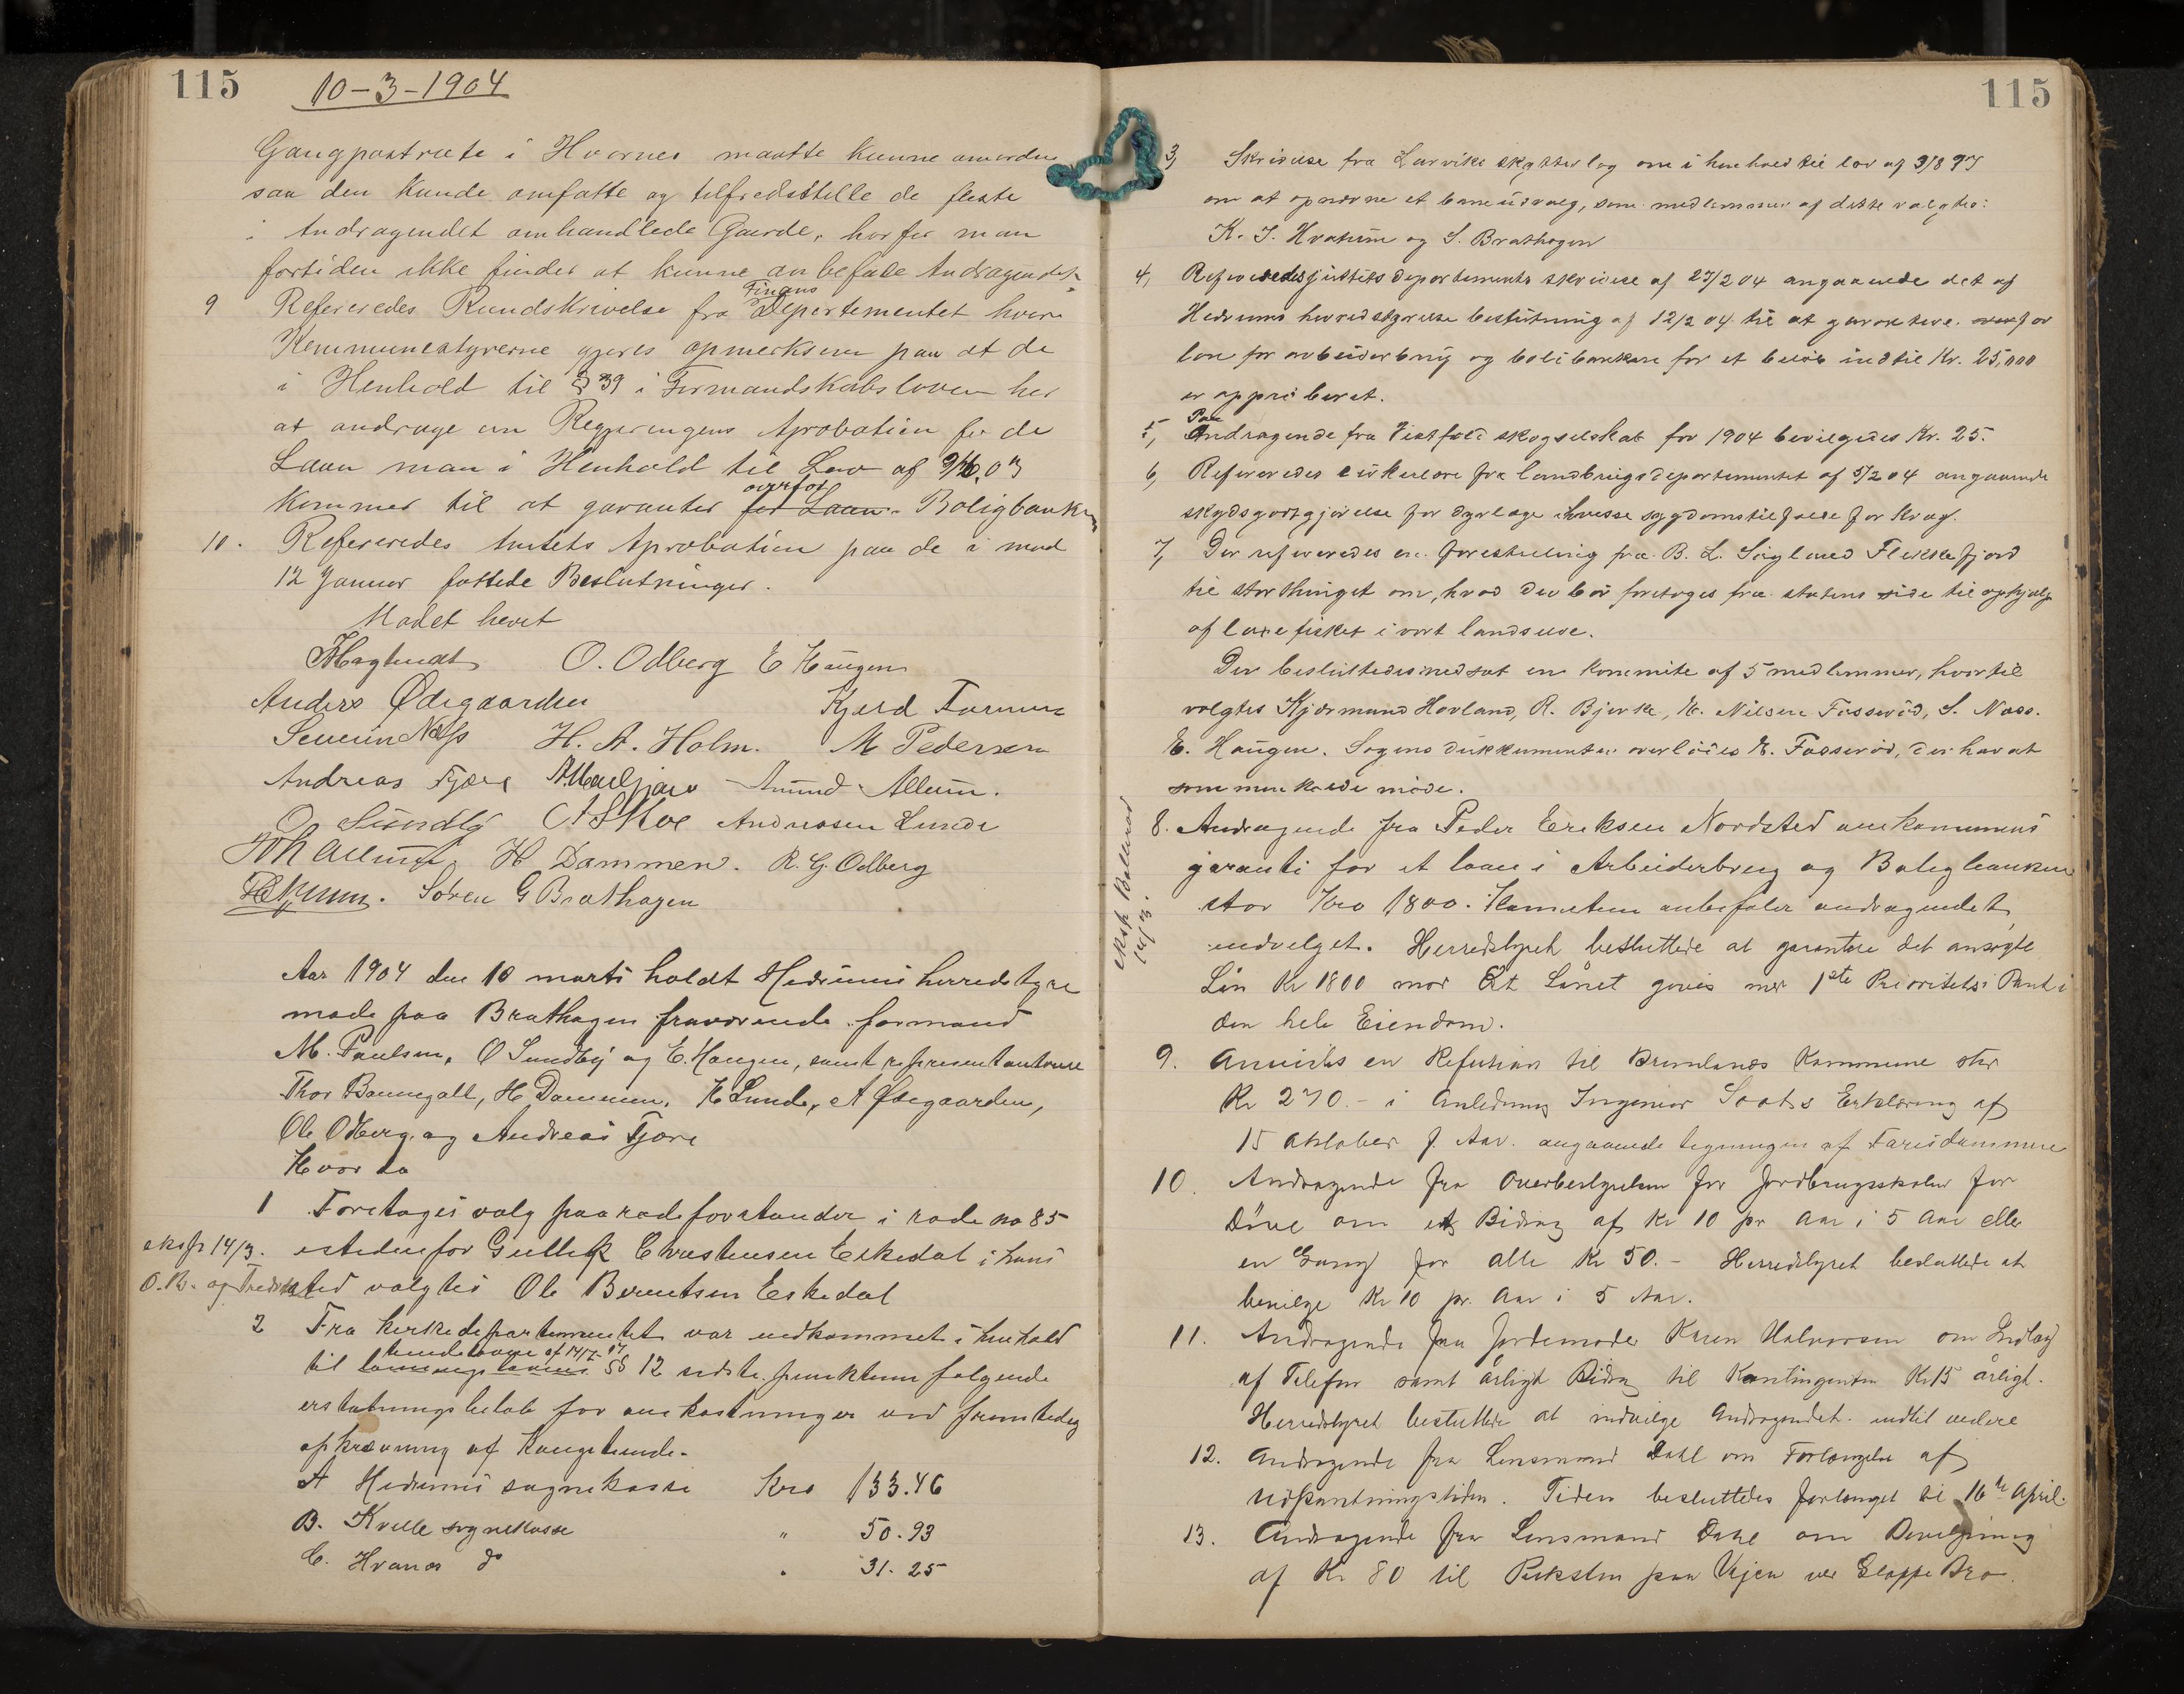 115 10-3-1904
Gangpostrute i Hvarnes maatte kunne anordnes
saa den kunde omfatte og tilfredsstille de fleste
i Andragendet omhandlede Gaarde, hvorfor man
fortiden ikke finder at kunne anbefale Andragendet.
9 Refereredes Rundskrivelse fra Finans Departementet hvori
Kommunestyrerne gjøres opmerksom paa at de
i Henhold til § 39 i Formandskabsloven har
at andrage om Regjeringens Aprobation for de
Laan man i Henhold til Lov af 9/6.03
kommer til at garanter for Laan overfor Boligbanken
10. Refereredes Amtets Aprobation paa de i mød
12 Januar fattede Beslutninger.
Mødet hevet
O. Odberg E Haugen
Anders Ødegaarden
Severin Næss H. A. Holm. M Pedersen
Andreas Fjære Amund Allum.
O Sundby A S Koe Andreasen Lunde
H Dammen. R. G. Odberg
Søren G Brathagen
Aar 1904 den 10 marts holdt Hedrums herredstyre
møde paa Brathagen fraværende formand
M. Paulsen, O Sundby og E. Haugen, samt representanterne
Thor Baunegalt, H Dammen, K Lunde, A Ødegaarden,
Ole Odberg og Andreas Fjære
Hvor da
1 Foretoges valg paa rodeforstander i rode no 85
eksp 14/3. istedenfor Gullik Christensen Eskedal i hans
sted valgtes Ole Berentsen Eskedal
2 Fra kirkedepartementet var indkommet i henhold
til hundeloven af §§ 12 sidste punktum følgende
erstatningsbeløb for omkostninger ved fremtidig
opkrævning af Kongetiende.
A Hedrums sognekasse Kro 133.46
B. Kvelle sognekasse " 50.93
C. Hvarnes do " 31.25
115
3, Skrivelse fra Larviks skytterlag om i henhold til lov af 3/8 97
om at opnævne et baneudvalg, som medlemmer af dette valgtes:
K. J. Hvatum og S. Brathagen
4, Refereredes justitsdepartements skrivelse af 27/2 04 angaaende det af
Hedrums herredstyrelse beslutning af 12/2 04 til at garantere
lån for arbeiderbrug og boligbanken for et beløb indtil Kr. 25,000
er approberet.
5, Paa Andragende fra Vestfold skogselskab for 1904 bevilgedes Kr. 25.
6, Refereredes cirkulære fra landbrugsdepartementet af 5/2 04 angaaende
skydsgodtgjørelse for dyrlæge i visse sygdomstilfælde for Kvæg.
7, Der refereredes en forestilling fra B. L. Sigland Flekkefjord
til storthinget om, hvad der bør foretages fra statens side til ophjælp
af laxefisket i vort landselve.
Der besluttedes nedsat en komite af 5 medlemmer, hvortil
valgtes Kjærmund Havland, R. Bjerke, N. Nilsen Fosserød, S. Næss.
E. Haugen. Sagens dukkumenter overlødes N. Fosserød, der har at
sammenkalde møde.
eksp 14/3.
8. Andragende fra Peder Eriksen Nordsted om kommunens
garanti for et laan i Arbeiderbrug og Boligbanken
stor Kro 1800. Komiteen anbefaler andragendet
indvilget. Herredstyret besluttede at garantere det ansøgte
Lån Kr 1800 mod at Lånet gives mod 1ste Prioritets Pant i
den hele Eiendom.
9. Anvistes en Refusion til Brunlanes Kommune stor
Kr 270.- i Anledning Ingeniør Saxes Erklæring af
15 Oktober f. Aar. angaaende tegningen af Farisdammene
10. Andragende fra Overbestyrelsen for Jordbrugsskolen for
Døve om et Bidrag af Kr 10 pr Aar i 5 Aar eller
en Gang for alle Kr 50.- Herredstyret besluttede at
bevilge Kr 10 pr. Aar i 5 Aar.
11. Andragende fra Jordemoder Karen Halvorsen om Indlæg
af Telefon samt årligt Bidrag til Kontingenten Kr 15 årligt.
Herredstyret besluttede at indvilge Andragendet indtil videre
12. Andragende fra Lensmand Dahl om Forlængelse af
Udpantningstiden. Tiden besluttedes forlænget til 16de April.
13. Andragende fra Lensmand Dahl om Bevilgning
af Kr 80 til Pukksten paa Veien ved Gloppe Bro.